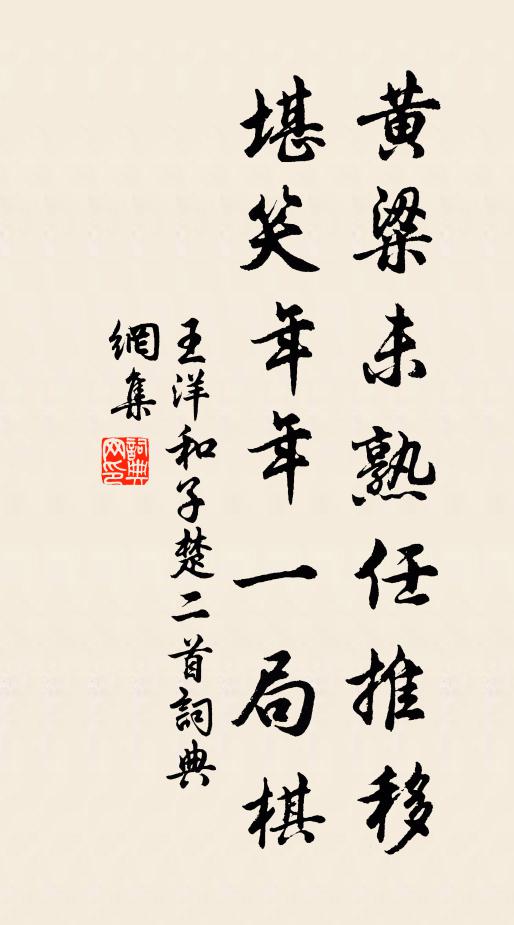 黄粱未熟任推移
堪笑年年一局棋
王洋和子楚二首詞典
網集
詞典網印